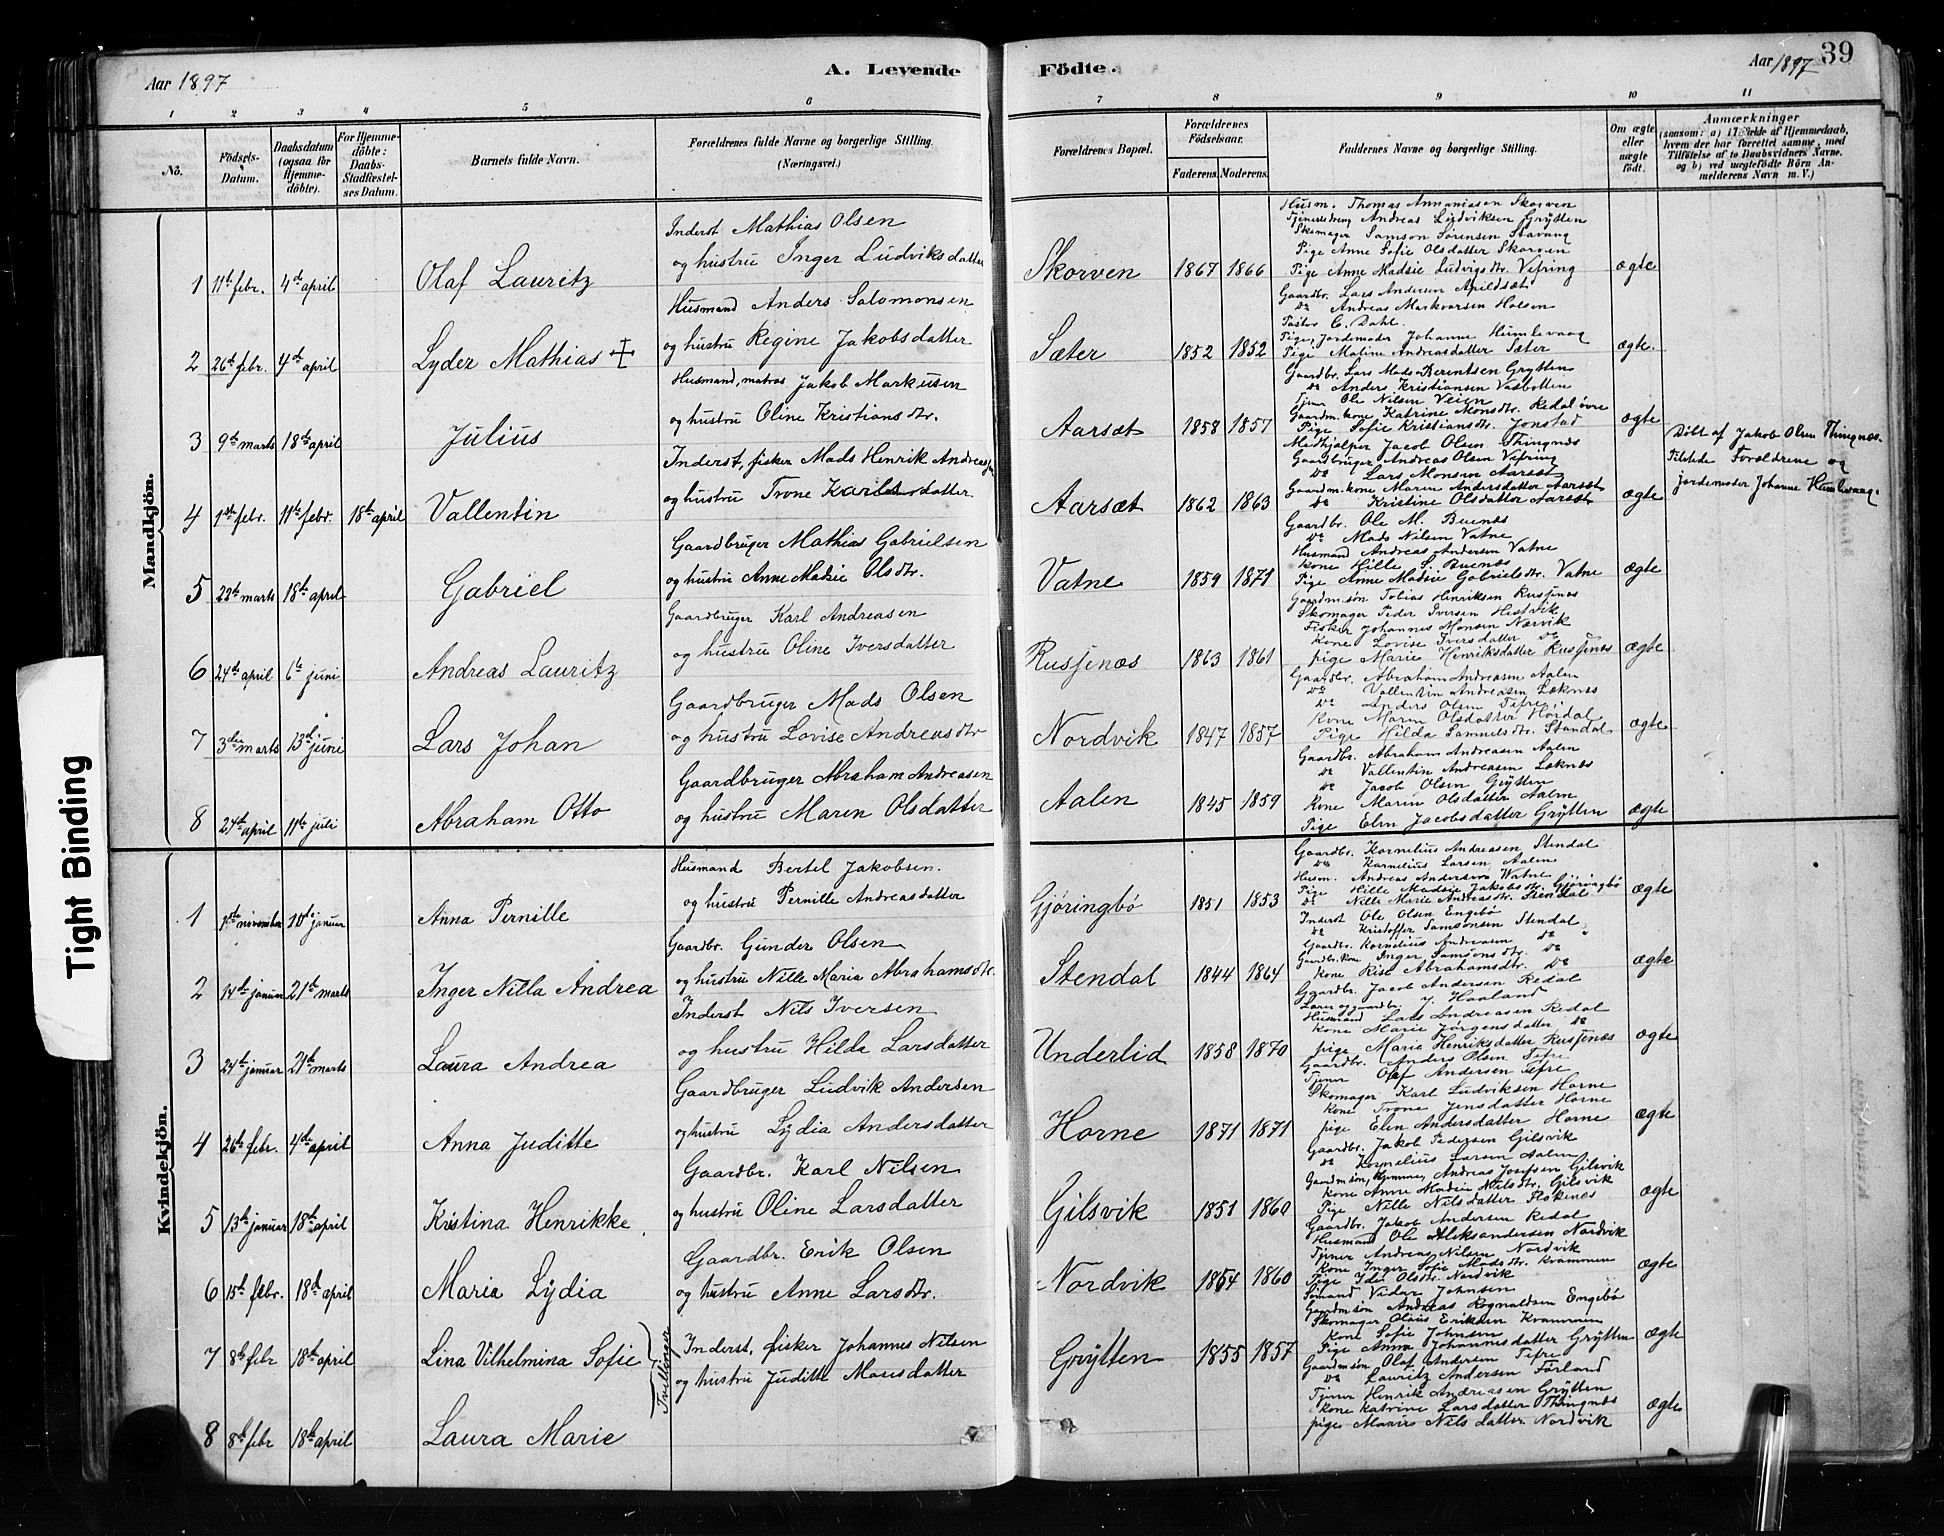 Aar 1897
A. Levende
Födte.
Aar 1897
39
1 2 3 4 5 6 7 8 9 10 11
No.
Födsels-Datum.
Daabsdatum (ogsaa for Hjemme-döbte).
For Hjemme-döbte: Daabs-Stadfæstel-ses Datum.
Barnets fulde Navn.
Forældrenes fulde Navne og borgerlige Stilling. (Næringsvei.)
Forældrenes Bopæl.
Forældrenes Födselsaar.
Faderens. Moderens.
Faddernes Navne og borgerlige Stilling.
Om ægte eller uægte födt.
Anmærkninger
(saasom: a) i Tilfælde af Hjemmedaab,
hvem der har forrettet samme, med
Tilföielse af to Daabsvidners Navne.
og b) ved uægtefödte Börn An-
melderens Navn m. V.)
Mandkjön.
Inderst Mathias Olsen
og hustru Inger Ludviksdatter
1 11te febr. 4de april Olaf Lauritz Skorven 1867 1866 ægte
Husm. Thomas Annaniasen Skorven
Andreas Ludviksen Grytten
Skomager Samson Sørensen Stavang
Pige Anne Sofie Olsdatter Skorven
Pige Anne Madsie Ludvigsdtr. Vefring
Husmand Anders Salomonsen
og hustru Regine Jakobsdatter
2 26de febr. 4de april Lyder Mathias Sæter 1852 1852 ægte.
Gaardbr. Lars Andersen Apildsæt
do Andreas Markvorsen Holsen
Pastor C. Dahl.
Pige, Jordemoder Johanne Humlevaag
Pige Maline Andreasdatter Sæter
Husmand, matros Jakob Markusen
og hustru Oline Kristiansdtr.
3 9de marts 18de april Julius Aarsæt 1858 1857 ægte
Gaardbr. Lars Mads Berentsen Grytten
do Anders Kristiansen Vasbotten
Tjener Ole Nilsen Veien
Gaardm. kone Katrine Monsdtr. Redal øvre
Pige Sofie Kristiansdtr. Jonstad
Inderst, fisker Mads Henrik Andreassen
og hustru Trone Karlsdatter
4 1ste febr. 11te febr. 18de april Vallentin Aarsæt 1862 1863 ægte
Medhjælper Jacob Olsen Thingnæs
Gaardbruger Andreas Olsen Vefring
do Lars Monsen Aarsæt
Gaardm. kone Maren Andersdatter Aarsæt
do Kristine Olsdatter Aarsæt
Döbt af Jakob Olsen Thingnæs.
Tilstede Forældrene og
jordemoder Johanne Humlevaag.
Gaardbruger Mathias Gabrielsen
og hustru Anne Madsie Olsdtr.
5 22de marts 18de april Gabriel Vatne 1859 1871 ægte
Gaardbr. Ole M. Buenæs
do Mads Nilsen Vatne
Husmand Andreas Andersen Vatne
kone Hille S. Buenæs
Pige Anne Madsie Gabrielsdtr. Vatne
Gaardbruger Karl Andreasen
og hustru Oline Iversdatter
6 24de april 6te juni Andreas Lauritz Russenæs 1863 1861 ægte
Gaardm. søn Tobias Henriksen Russenæs
Skomager Peder Iversen Hestvik
Fisker Johannes Monsen Nærvik
Kone Lovise Iversdatter do
pige Marie Henriksdatter Russenæs
Gaardbruger Mads Olsen
og hustru Lovise Andreasdtr
7 3die marts 13de juni Lars Johan Nordvik 1847 1857 ægte
Gaardbr. Abraham Andreasen Aalen
do Vallentin Andreasen Læknæs
do Anders Olsen Tefre
Kone Maren Olsdatter Hordal
Pige Hilda Samuelsdtr. Standal
Gaardbruger Abraham Andreasen
og hustru Maren Olsdatter
8 24de april 11te juli Abraham Otto Aalen 1845 1859 ægte
Gaardbr. Abraham Andreasen Aalen
do Vallentin Andreasen Læknæs
do Jacob Olsen Grytten
Kone Maren Olsdatter Aalen
Pige Elen Jacobsdatter Grytten
Kvindekjön.
Husmand Bertel Jakobsen.
og hustru Pernille Andreasdatter
1 1ste november 10de januar Anna Pernille Gjøringbø 1851 1853 ægte
Gaardbr. Kornelius Andreasen Stendal
do Kornelius Larsen Aalen
Husm. Andreas Andersen Watne
Pige Hille Madsie Jakobsdtr. Gjøringbø
do Nille Marie Andreasdtr. Stendal
Gaardbr. Gunder Olsen
og hustru Nille Marie Abrahamsdtr.
2 14de januar 21de marts Inger Nilla Andrea Stendal 1844 1864 ægte
Inderst Ole Olsen Engebø
do Kristoffer Samsonsen Stendal
Gaardbr. Kornelius Andreasen do
Gaardbr. kone Inger Samsonsdtr. do
kone Rise Abrahamsdtr. do
Inderst Nils Iversen
og hustru Hilda Larsdatter
3 24de januar 21de marts Laura Andrea Underlid 1858 1870 ægte
Gaardbr. Jacob Andersen Redal
Lærer og gaardbr. J. Haaland
Husmand Lars Andreasen Redal
kone Marie Jørgensdatter do
pige Marie Henriksdatter Russenæs
Gaardbruger Ludvik Andersen
og hustru Lydia Andersdatter
4 26de febr. 4de april Anna Juditte Horne 1871 1871 ægte
Gaardbr. Anders Olsen Tefre
Tjener Olaf Andersen Tefre
Skomager Karl Ludviksen Horne
kone Trone Jensdatter Horne
pige Elen Andersdatter Horne
Gaardbr. Karl Nilsen
og hustru Oline Larsdatter
5 13de januar 18de april Kristina Henrikke Gilsvik 1851 1860 ægte
Gaardbr. Jakob Pedersen Gilsvik
do Kornelius Larsen Aalen
Gaardm. søn, hjemme, Andreas Josefsen Gilsvik
kone Anne Madsie Nilsdtr. Gilsvik
Pige Nille Nilsdatter Fiskenæs
Gaardbr. Erik Olsen
og hustru Anne Larsdtr.
6 15de febr. 18de april Maria Lydia Nordvik 1854 1860 ægte
Gaardbr. Jakob Andersen Redal
Husmand Ole Aleksandersen Nordvik
Tjener Andreas Nilsen Nordvik
Kone Inger Sofie Madsdtr. Kvammen
Pige Ida Olsdtr. Nordvik
Tvillinger
Inderst, fisker Johannes Nilsen
og hustru Juditte Mosesdatter
7 8de febr 18de april Lina Vilhelmina Sofie Grytten 1855 1857 ægte
Sømand Vidar Johnsen
Gaardm. søn Andreas Rognaldsen Engebø
Skomager Olaus Eriksen Kvammen
Kone Sofie Johnsen
Pige Anna Johannesdatter Grytten
8 8de febr 18de april Laura Marie ægte
Gaardm. søn Olaf Andersen Tefre
do Lauritz Andersen Förland
Tjener Henrik Andreasen Grytten
kone Katrine Larsdatter Thingnæs
pige Maria Nilsdatter Nordvik
Tight Binding